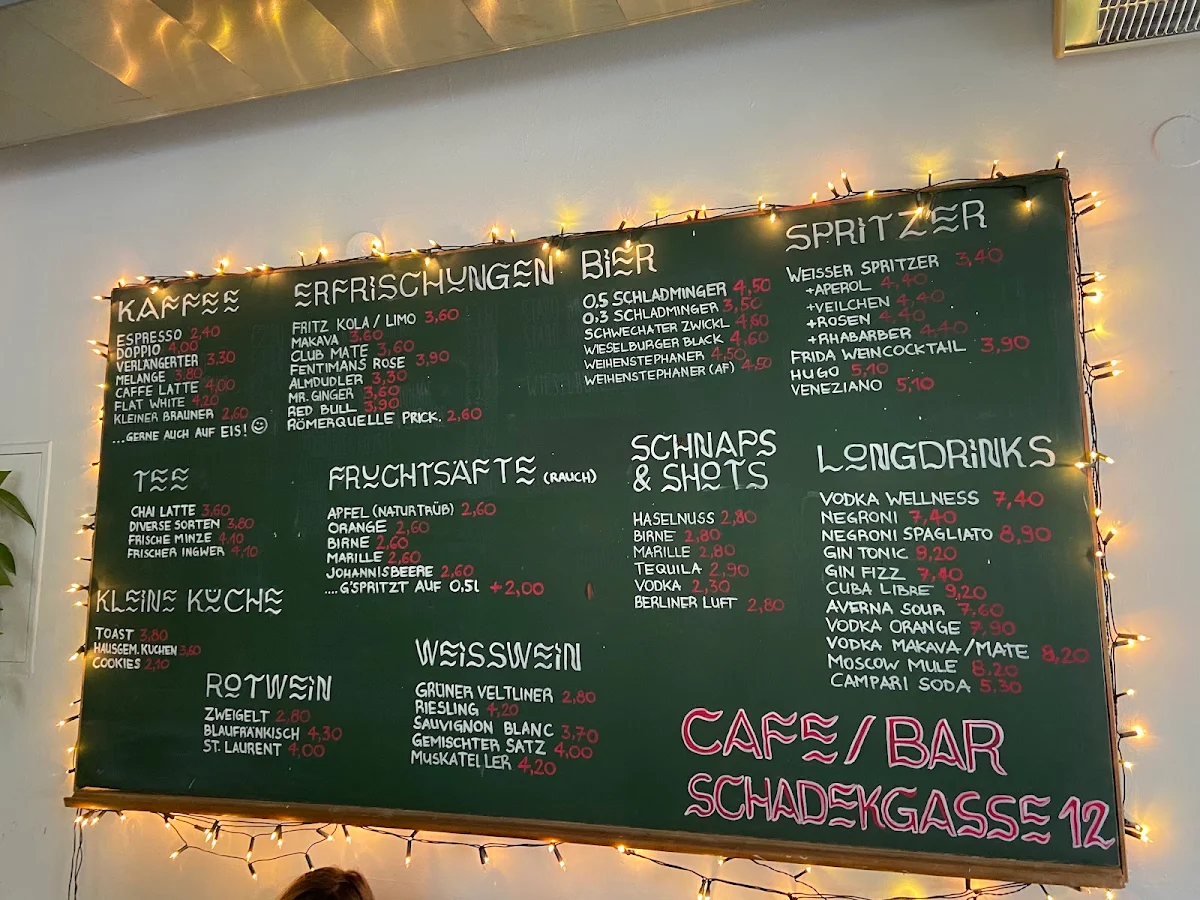 KAFFEE
ESPRESSO 2,40
DOPPIO 4,00
VERLÄNGERTER 3,30
MELANGE 3,80
CAFFE LATTE 4,00
FLAT WHITE 4,20
KLEINER BRAUNER 2,60
...GERNE AUCH AUF EIS! ☺
ERFRISCHUNGEN
FRITZ KOLA / LIMO 3,60
MAKAVA 3,60
CLUB MATE 3,60
FENTIMANS ROSE 3,90
ALMDUDLER 3,30
MR. GINGER 3,60
RED BULL 3,90
RÖMERQUELLE PRICK. 2,60
BIER
0,5 SCHLADMINGER 4,50
0,3 SCHLADMINGER 3,50
SCHWECHATER ZWICKL 4,60
WIESELBURGER BLACK 4,60
WEIHENSTEPHANER 4,50
WEIHENSTEPHANER (AF) 4,50
SPRITZER
WEISSER SPRITZER 3,40
+APEROL 4,40
+VEILCHEN 4,40
+ROSEN 4,40
+RHABARBER 4,40
FRIDA WEINCOCKTAIL 3,90
HUGO 5,10
VENEZIANO 5,10
TEE
CHAI LATTE 3,60
DIVERSE SORTEN 3,80
FRISCHE MINZE 4,10
FRISCHER INGWER 4,10
FRUCHTSÄFTE (RAUCH)
APFEL (NATURTRÜB) 2,60
ORANGE 2,60
BIRNE 2,60
MARILLE 2,60
JOHANNISBEERE 2,60
....G'SPRITZT AUF 0,5l +2,00
SCHNAPS
& SHOTS
HASELNUSS 2,80
BIRNE 2,80
MARILLE 2,80
TEQUILA 2,90
VODKA 2,30
BERLINER LUFT 2,80
LONGDRINKS
VODKA WELLNESS 7,40
NEGRONI 7,40
NEGRONI SPAGLIATO 8,90
GIN TONIC 9,20
GIN FIZZ 7,40
CUBA LIBRE 9,20
AVERNA SOUR 7,60
VODKA ORANGE 7,90
VODKA MAKAVA/MATE 8,20
MOSCOW MULE 8,20
CAMPARI SODA 5,30
KLEINE KUCHE
TOAST 3,80
HAUSGEM. KUCHEN 3,60
COOKIES 2,10
ROTWEIN
ZWEIGELT 2,80
BLAUFRÄNKISCH 4,30
ST. LAURENT 4,00
WEISSWEIN
GRÜNER VELTLINER 2,80
RIESLING 4,20
SAUVIGNON BLANC 3,70
GEMISCHTER SATZ 4,00
MUSKATELLER 4,20
CAFE/BAR
SCHADEKGASSE 12